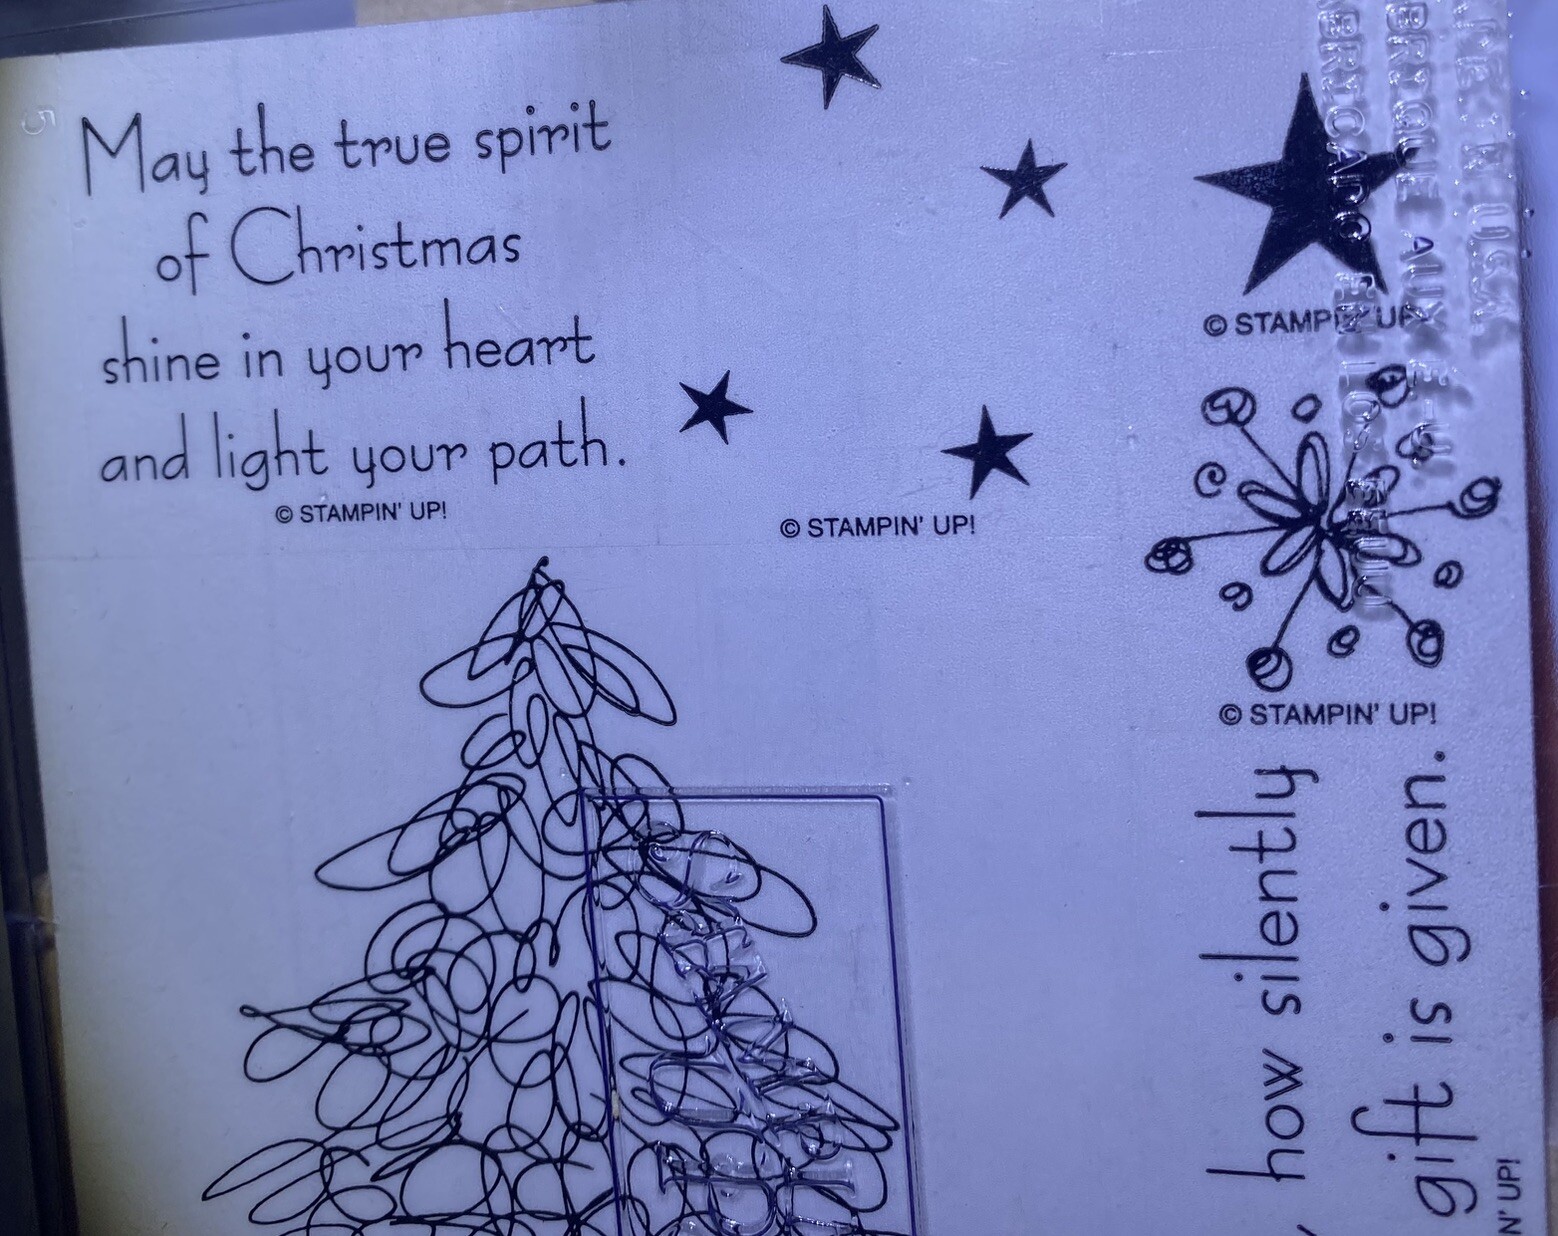 May the true spirit
of Christmas
shine in your heart
and light your path.
© STAMPIN' UP!
© STAMPIN' UP!
© STAMPIN' UP
© STAMPIN' UP!
how silently
gift is given.
N' UP!
5